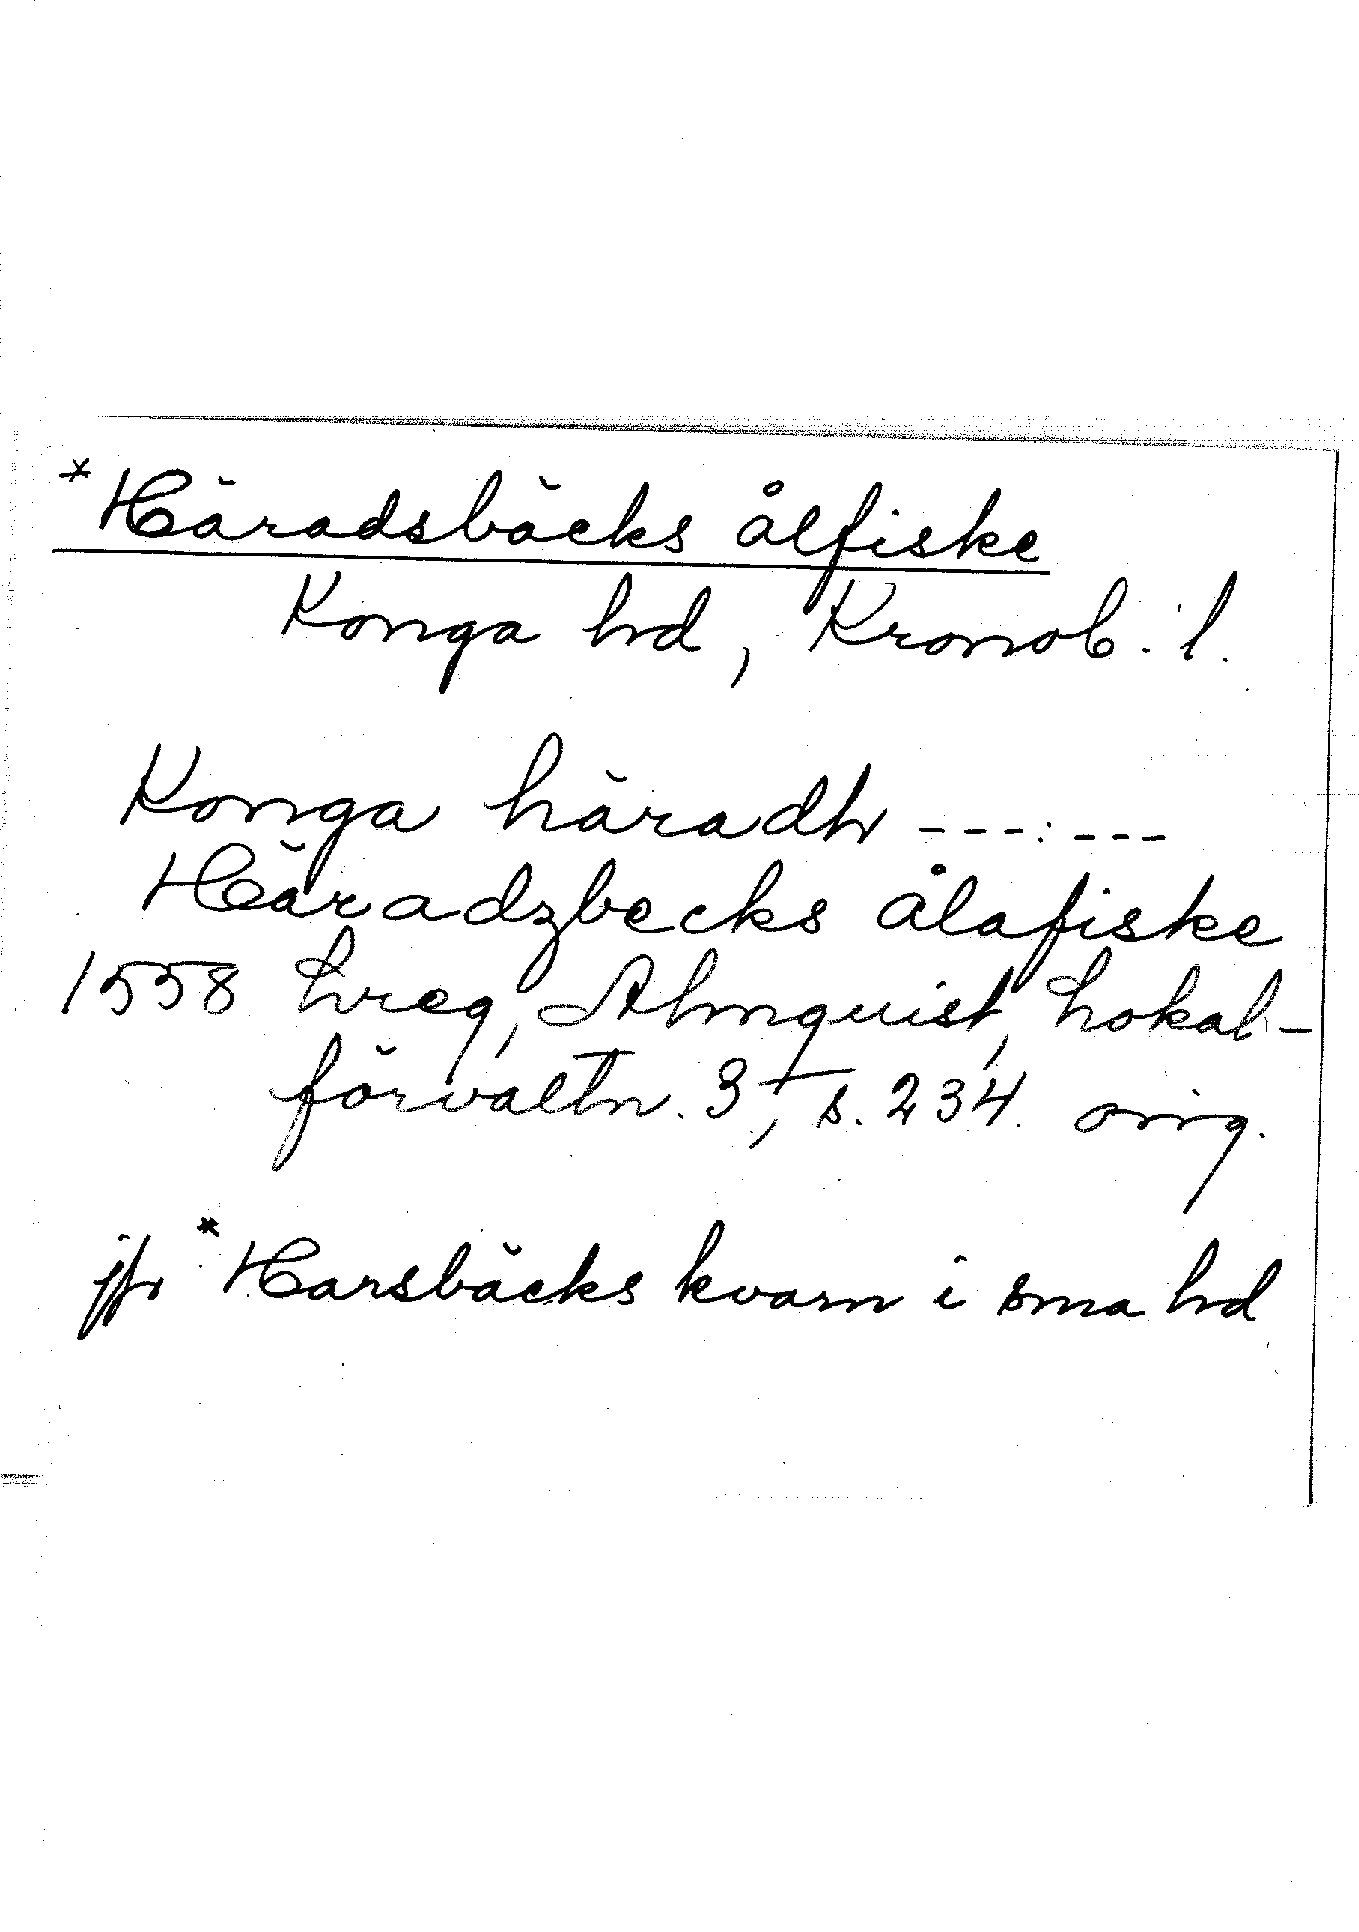 *Häradsbäcks ålfiske
Konga hd, Kronob. l.
Konga häradh ---:---
Häradzbecks ålafiske
1558 Lreg, Almquist, Lokal-
förvaltn. 3, s. 234. orig.
jfr *Harsbäcks kvarn i sma hd